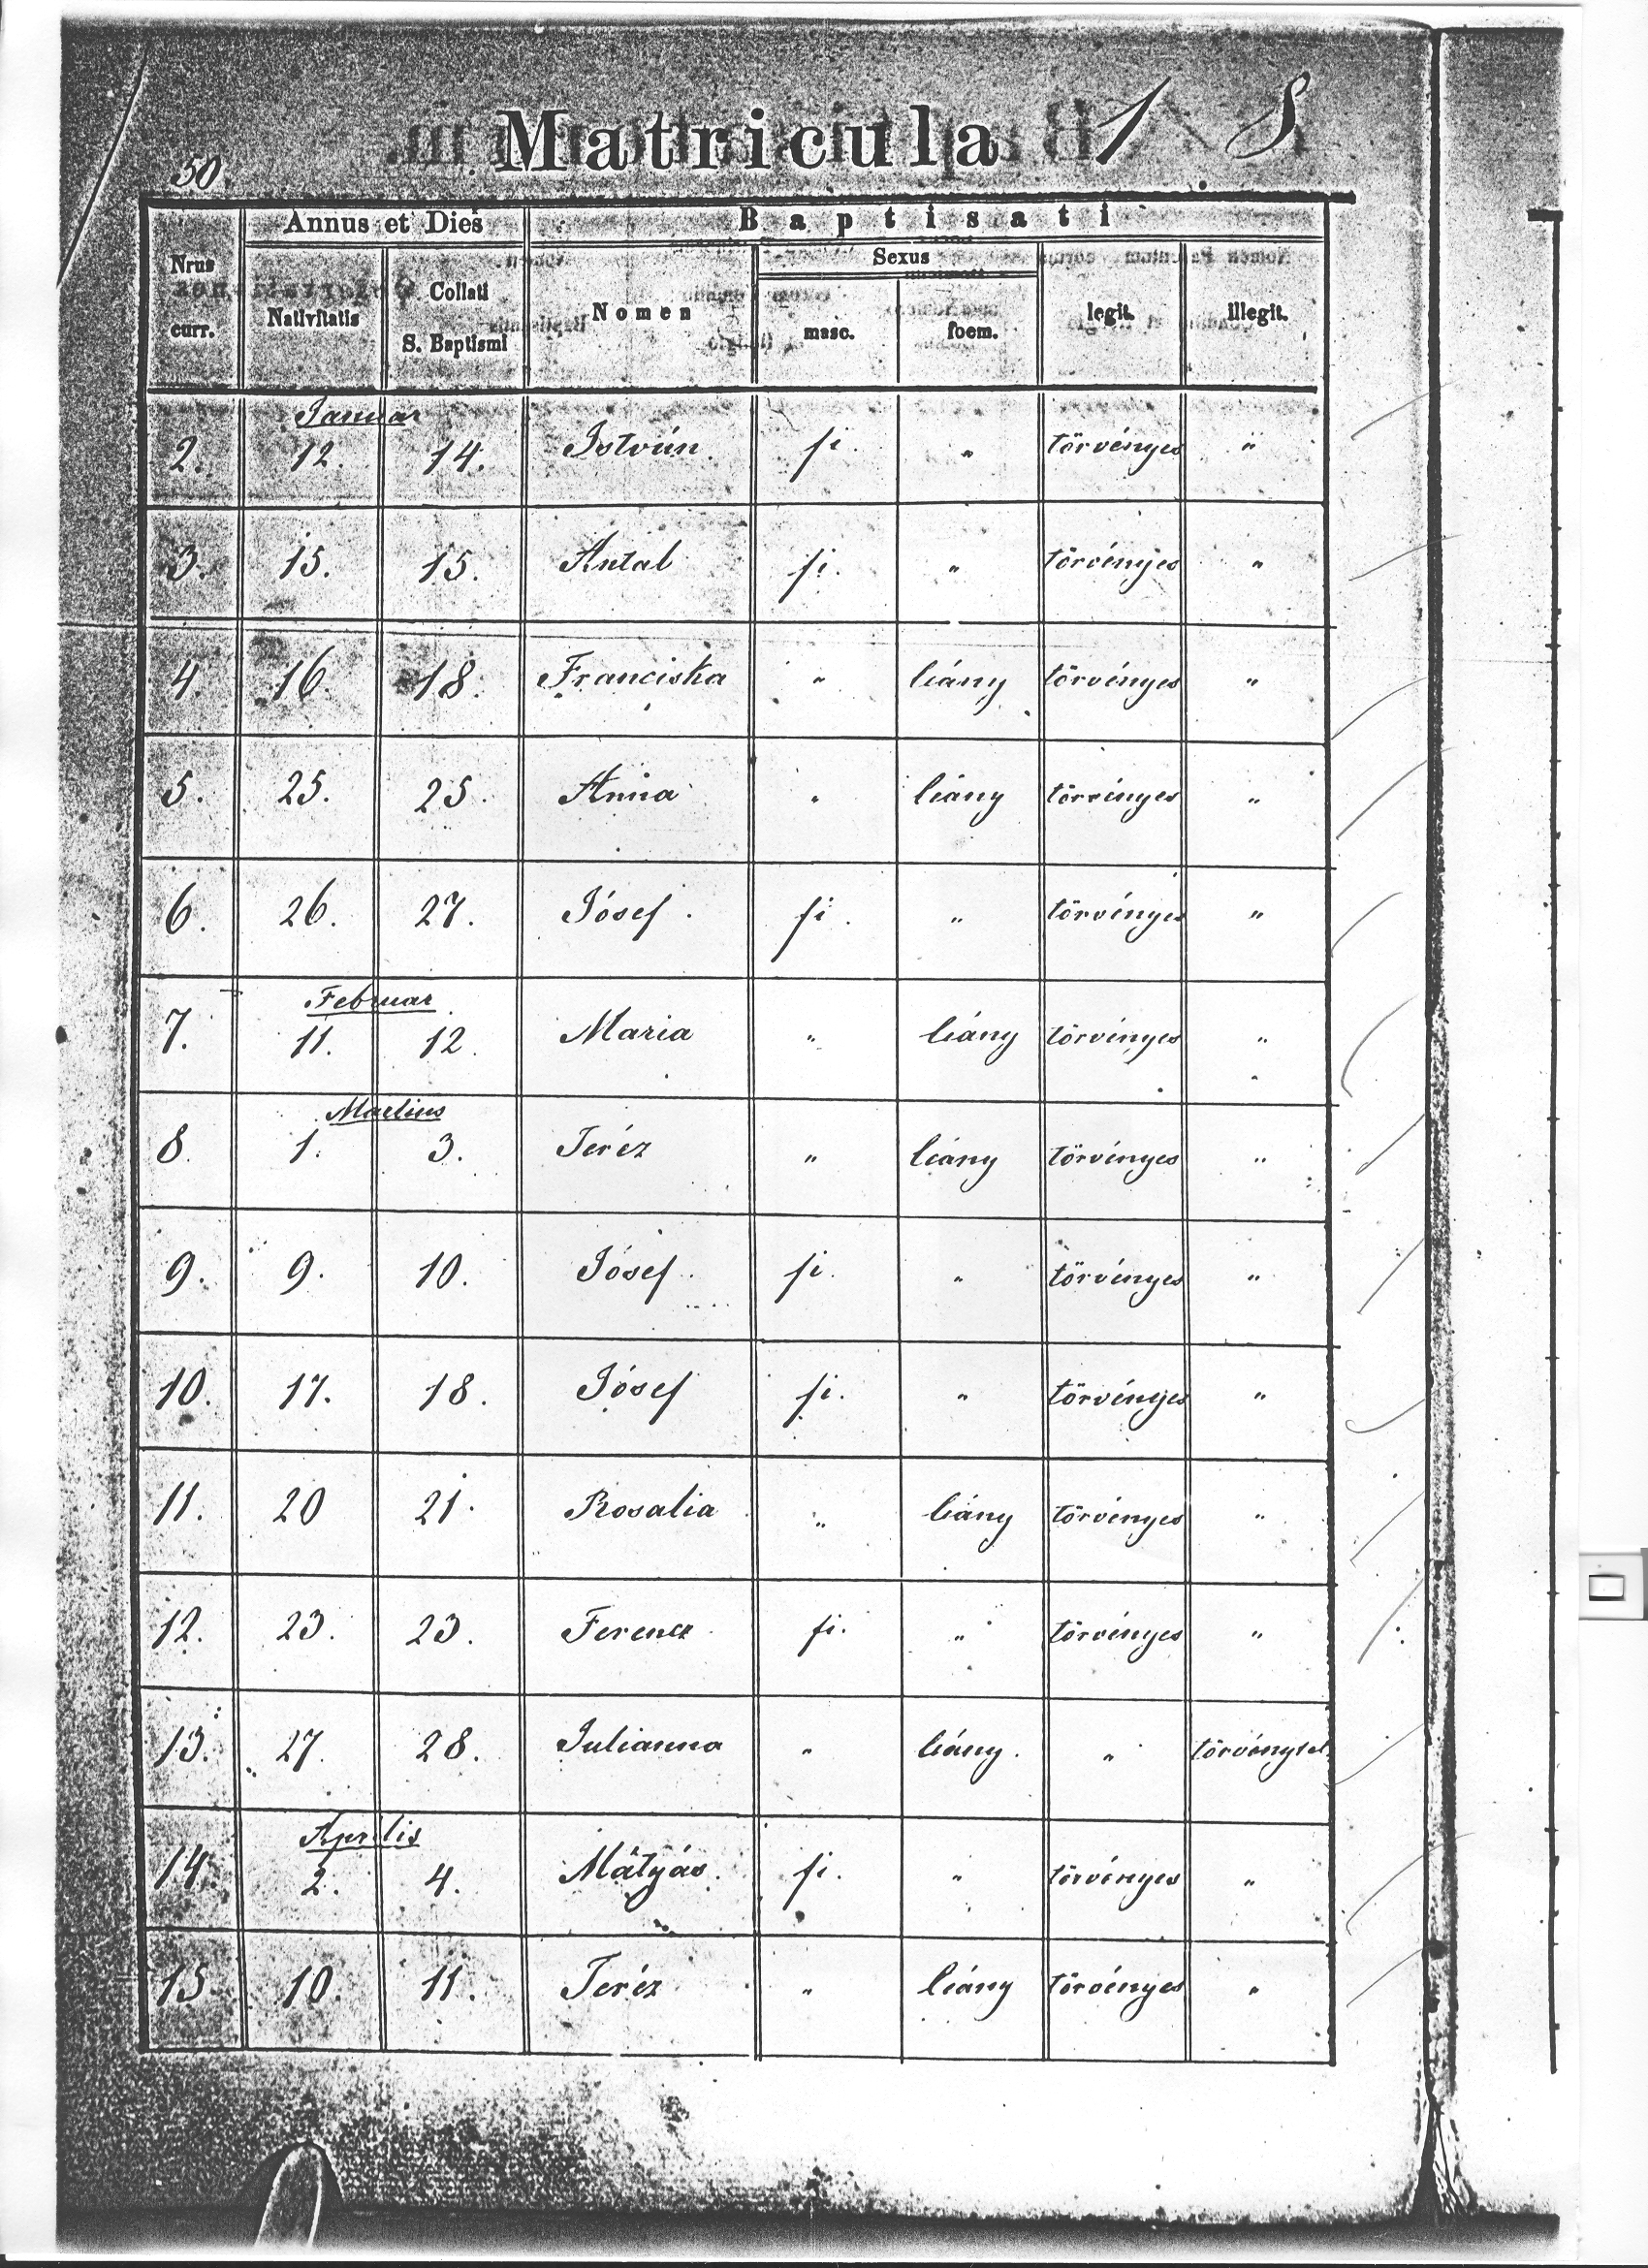 Matricula 1 8
50
Annus et Dies Baptisati
Nrus curr. Nativitatis Collati S. Baptismi Nomen Sexus masc. foem. legit. illegit.
Januar
2. 12. 14. István fi. " törvényes "
3. 15. 15. Antal fi. " törvényes "
4. 16. 18. Franciska " leány törvényes "
5. 25. 25. Anna " leány törvényes "
6. 26. 27. Jósef fi. " törvényes "
Februar
7. 11. 12. Maria " leány törvényes "
Martius
8. 1. 3. Teréz " leány törvényes "
9. 9. 10. Jósef fi. " törvényes "
10. 17. 18. Jósef fi. " törvényes "
11. 20 21. Rosalia " leány törvényes "
12. 23. 23. Ferencz fi. " törvényes "
13. 27. 28. Julianna " leány. "
Aprilis
14. 2. 4. Mátyás fi. " törvényes "
15 10. 11. Teréz " leány törvényes "